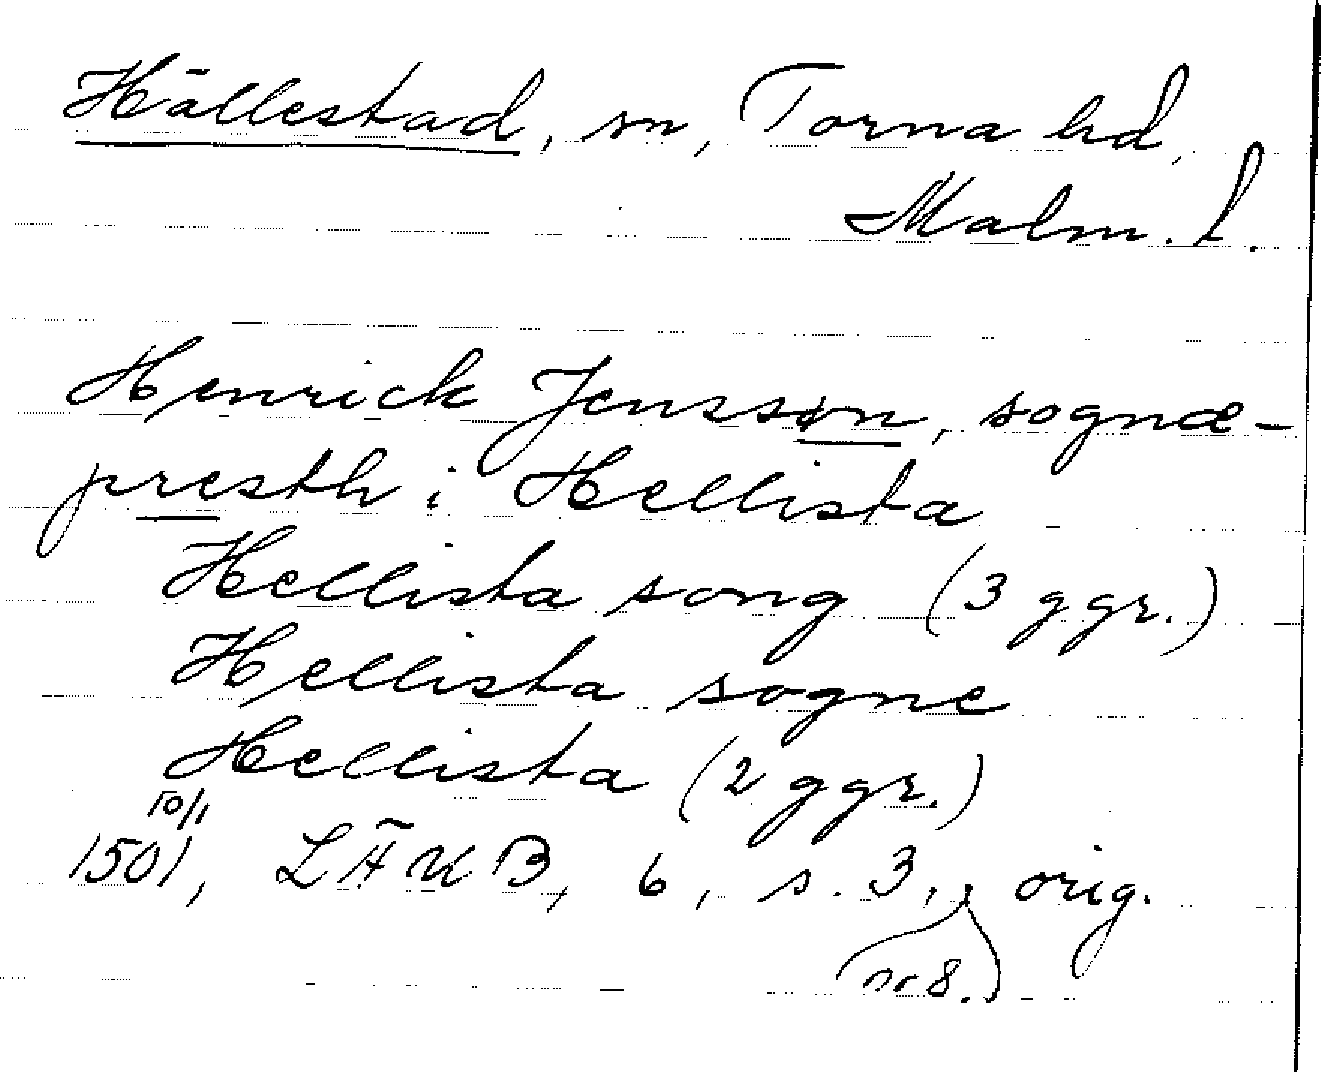 Hällestad, sn, Torna hd,
Malm. l.
Henrick Jensson, sognæ-
presth i Hellista
Hellista song (3 ggr.)
Hellista sogne
Hellista (2 ggr.)
10/1
1501, LÄUB, 6, s. 3, orig.
nr 8.